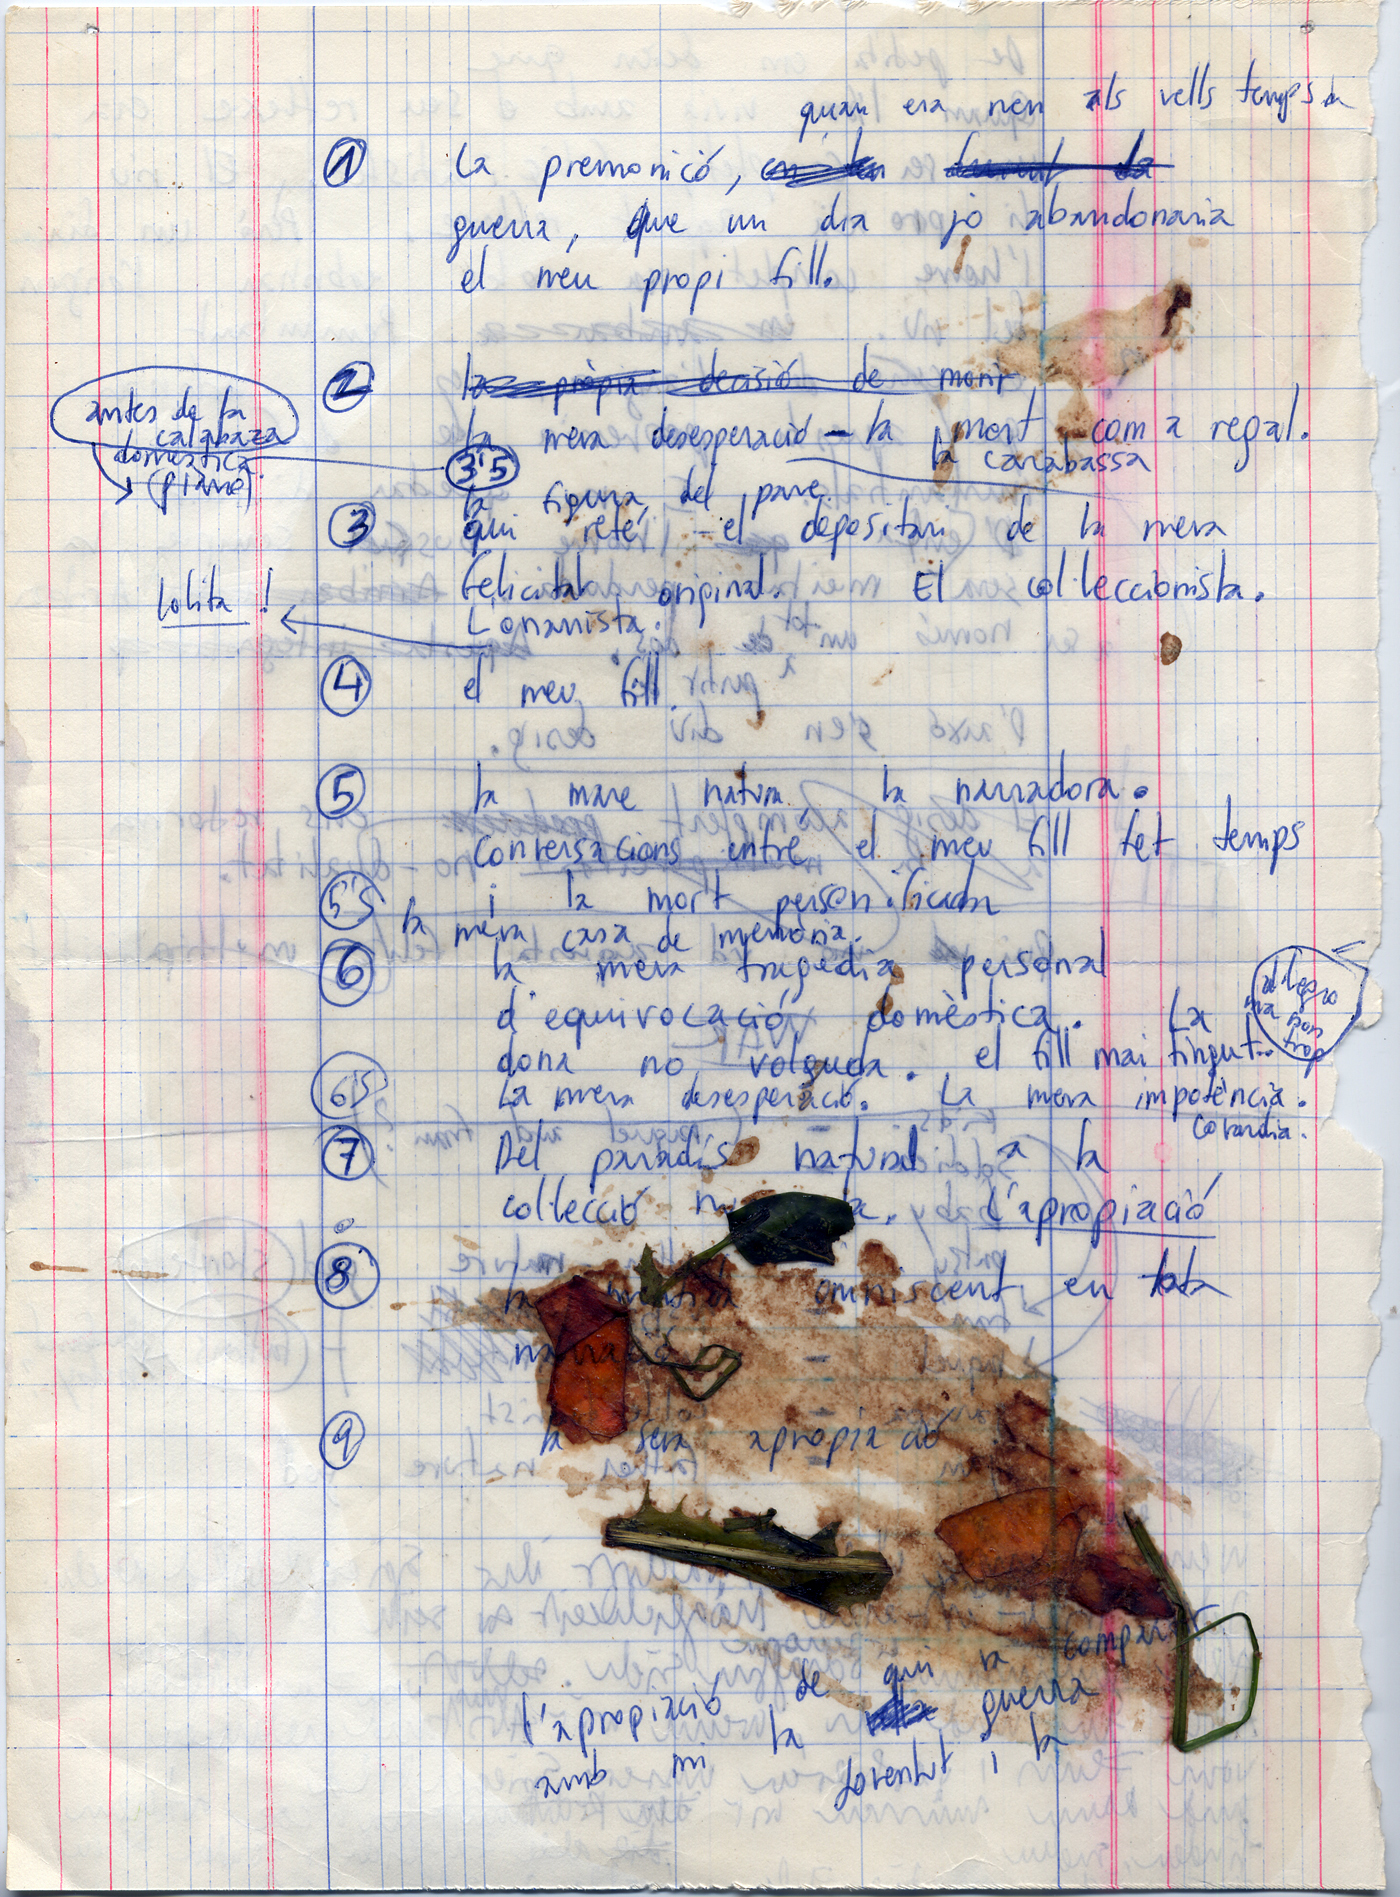 quan era nen als vells temps
① La premonició,
guerra, que un dia jo abandonaria
el meu propi fill.
② la pròpia decisió de morir
La meva desesperació – la mort com a regal.
la carabassa
antes de la
calabaza
doméstica
(piano).
3'5
la figura del pare
③ qui reté – el depositari de la meva
felicitat original. El col·leccionista.
L'onanista.
Lolita!
④ el meu fill
⑤ la mare natura la narradora.
Conversacions entre el meu fill fet temps
5'5 i la mort personificada
la meva casa de memòria.
⑥ la meva tragèdia personal
d'equivocació domèstica. La
dona no volguda. el fill mai tingut..
allegro
ma non
6'5 La meva desesperació. La meva impotència.
Covardia.
⑦ Del paradís natural a la
col·lecció L'apropiació
⑧ la omniscent en tota
⑨ la seva apropiació
l'apropiació de qui va compartir
amb mi la guerra
joventut i la